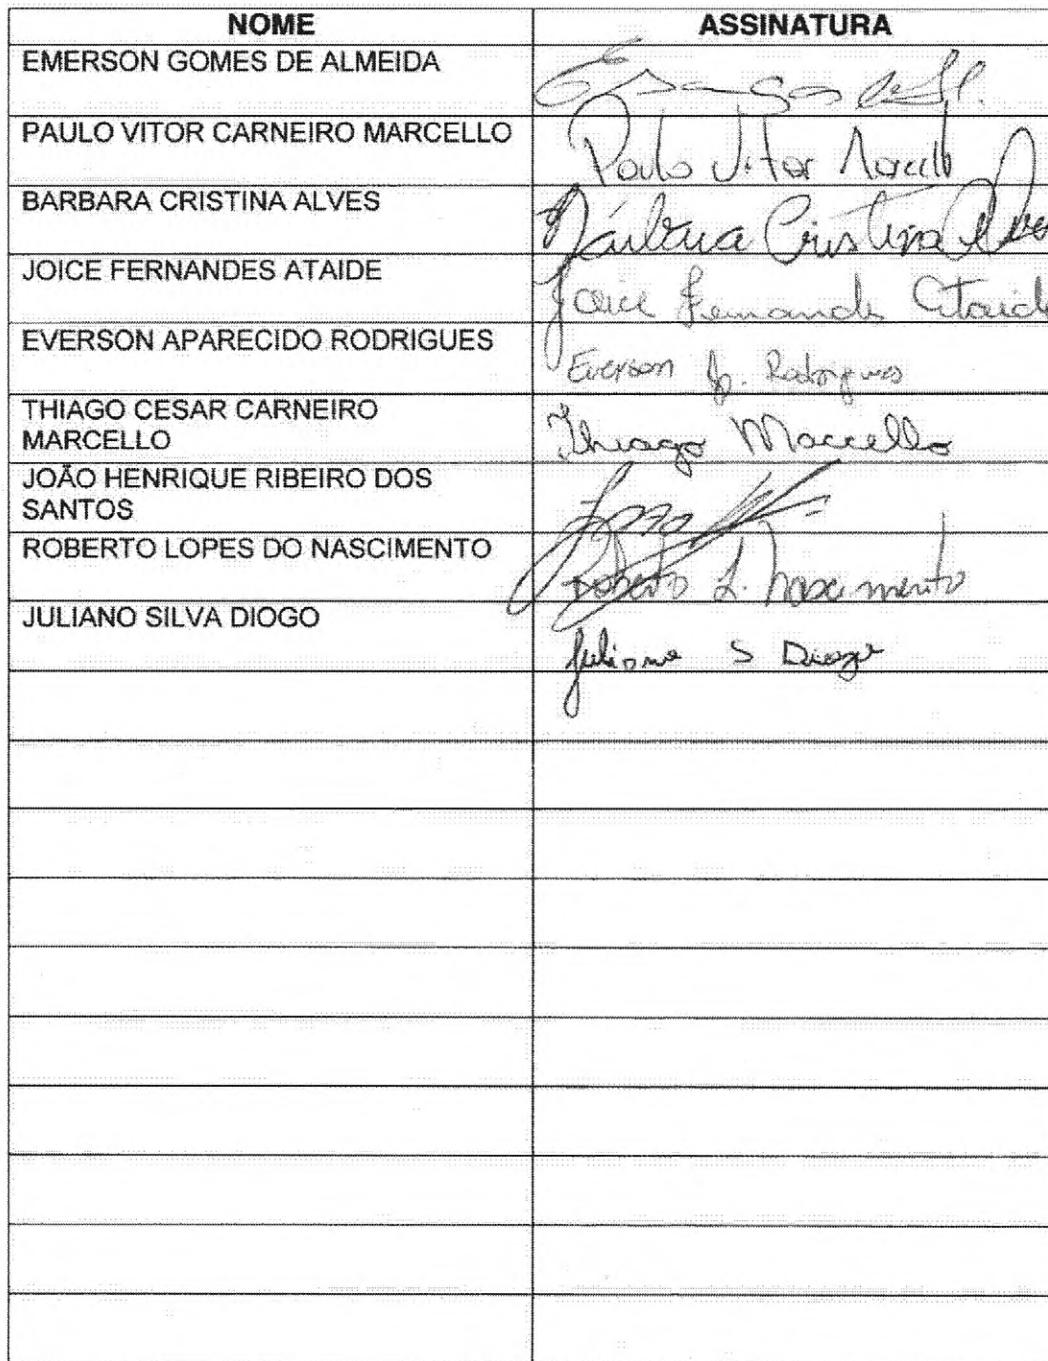 NOME ASSINATURA
EMERSON GOMES DE ALMEIDA
PAULO VITOR CARNEIRO MARCELLO Paulo Vitor Marcello
BARBARA CRISTINA ALVES Bárbara Cristina Alves
JOICE FERNANDES ATAIDE Joice Fernandes Ataide
EVERSON APARECIDO RODRIGUES Everson Ap. Rodrigues
THIAGO CESAR CARNEIRO
MARCELLO Thiago Marcello
JOÃO HENRIQUE RIBEIRO DOS
SANTOS
ROBERTO LOPES DO NASCIMENTO Roberto L. Nascimento
JULIANO SILVA DIOGO Juliano S Diogo